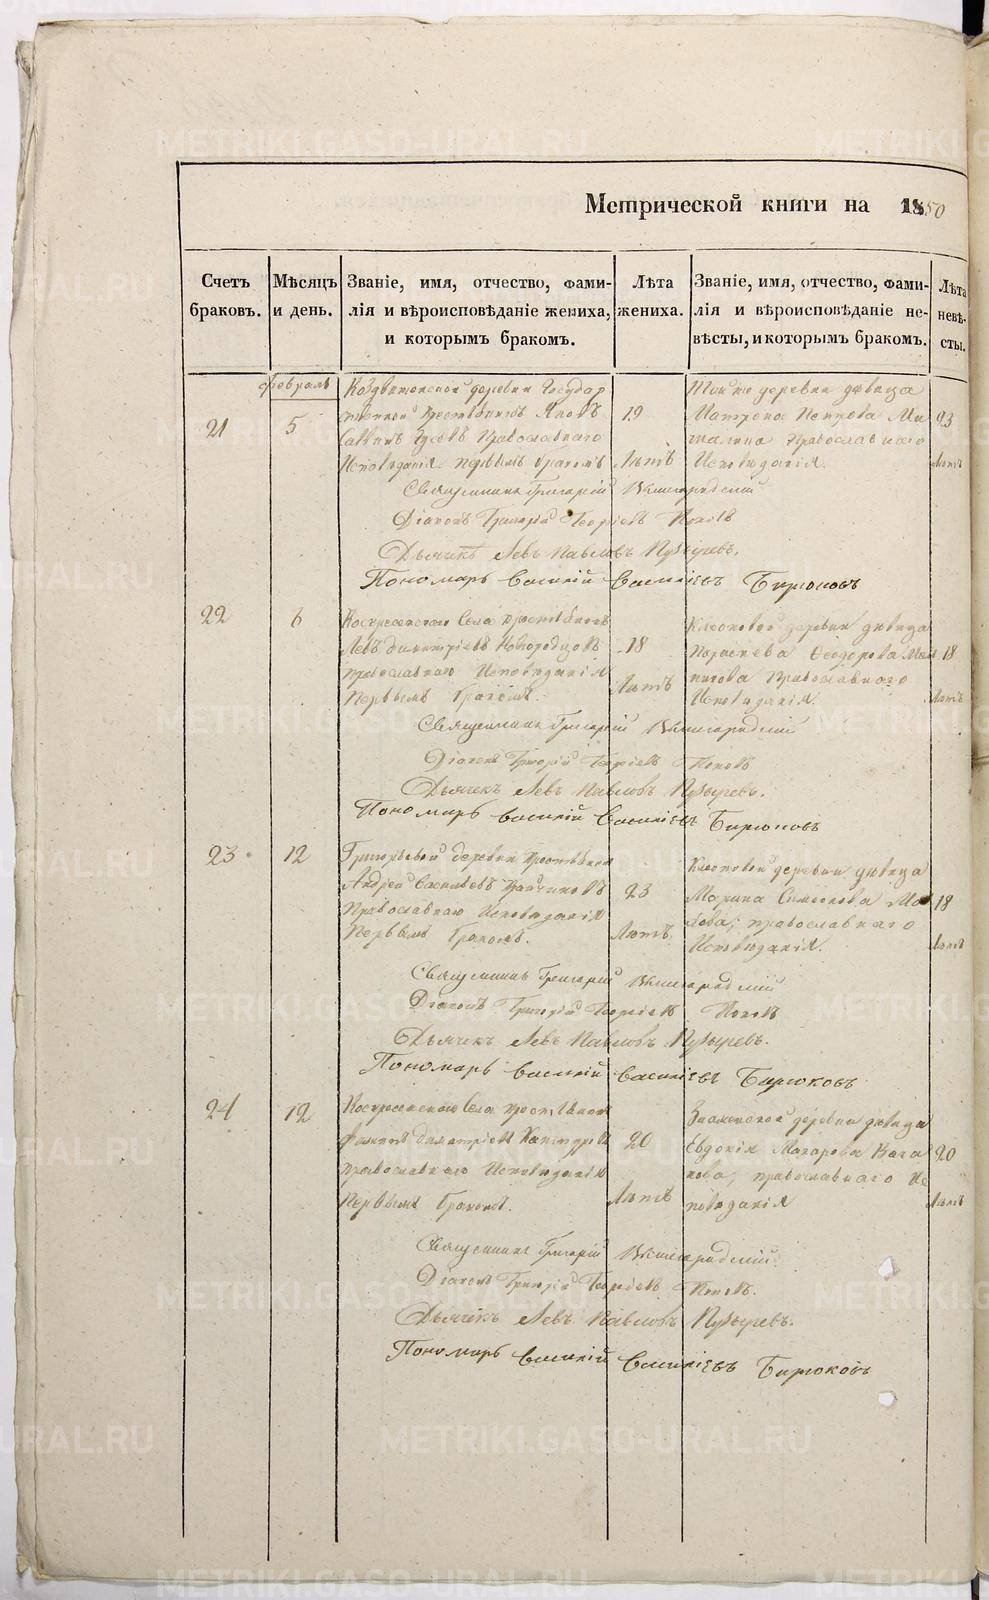 Метрической книги на 1850
Счетъ браковъ.
Мѣсяцъ и день.
Званіе, имя, отчество, фами-
лія и вѣроисповѣданіе жениха,
и которымъ бракомъ.
Лѣта
жениха.
Званіе, имя, отчество, фами-
лія и вѣроисповѣданіе не-
вѣсты, и которымъ бракомъ.
Лѣта
невѣ-
сты.
февраль
21
5
Воздвиженской деревни Государ
ственной крестьянинъ Яковъ
Саввинъ Православнаго
Исповѣданія первымъ бракомъ
19
Лѣтъ
Той же деревни дѣвица
Матрона Петрова
Православнаго
Исповѣданія.
23
Лѣтъ
Священникъ Григорій Вышеградскій
Діаконъ Григорій Георгіевъ Поповъ
Дьячекъ Левъ Павловъ Пузыревъ.
Пономарь Василій Васильевъ Бирюковъ
22
6
Воскресенскаго Села крестьянинъ
Левъ Димитріевъ Новгородцовъ
православнаго Исповѣданія
Первымъ бракомъ.
18
Лѣтъ
деревни дѣвица
Параскева Ѳеодорова
Православнаго
Исповѣданія.
18
Лѣтъ
Священникъ Григорій Вышеградскій
Діаконъ Григорій Георгіевъ Поповъ
Дьячекъ Левъ Павловъ Пузыревъ.
Пономарь Василій Васильевъ Бирюковъ
23
12
Григорьевой деревни Крестьянинъ
Андрей Васильевъ
Православнаго Исповѣданія
Первымъ бракомъ.
23
Лѣтъ
деревни дѣвица
Марина Симеонова
православнаго
Исповѣданія.
18
Лѣтъ
Священникъ Григорій Вышеградскій
Діаконъ Григорій Георгіевъ Поповъ
Дьячекъ Левъ Павловъ Пузыревъ.
Пономарь Василій Васильевъ Бирюковъ
24
12
Воскресенскаго Села крестьянинъ
Димитріевъ
православнаго Исповѣданія
Первымъ бракомъ.
20
Лѣтъ
Знаменской деревни дѣвица
Евдокія Макарова Вага
нова, православнаго Ис
повѣданія
20
Лѣтъ
Священникъ Григорій Вышеградскій
Діаконъ Григорій Георгіевъ Поповъ.
Дьячекъ Левъ Павловъ Пузыревъ.
Пономарь Василій Васильевъ Бирюковъ
METRIKI.GASO-URAL.RU